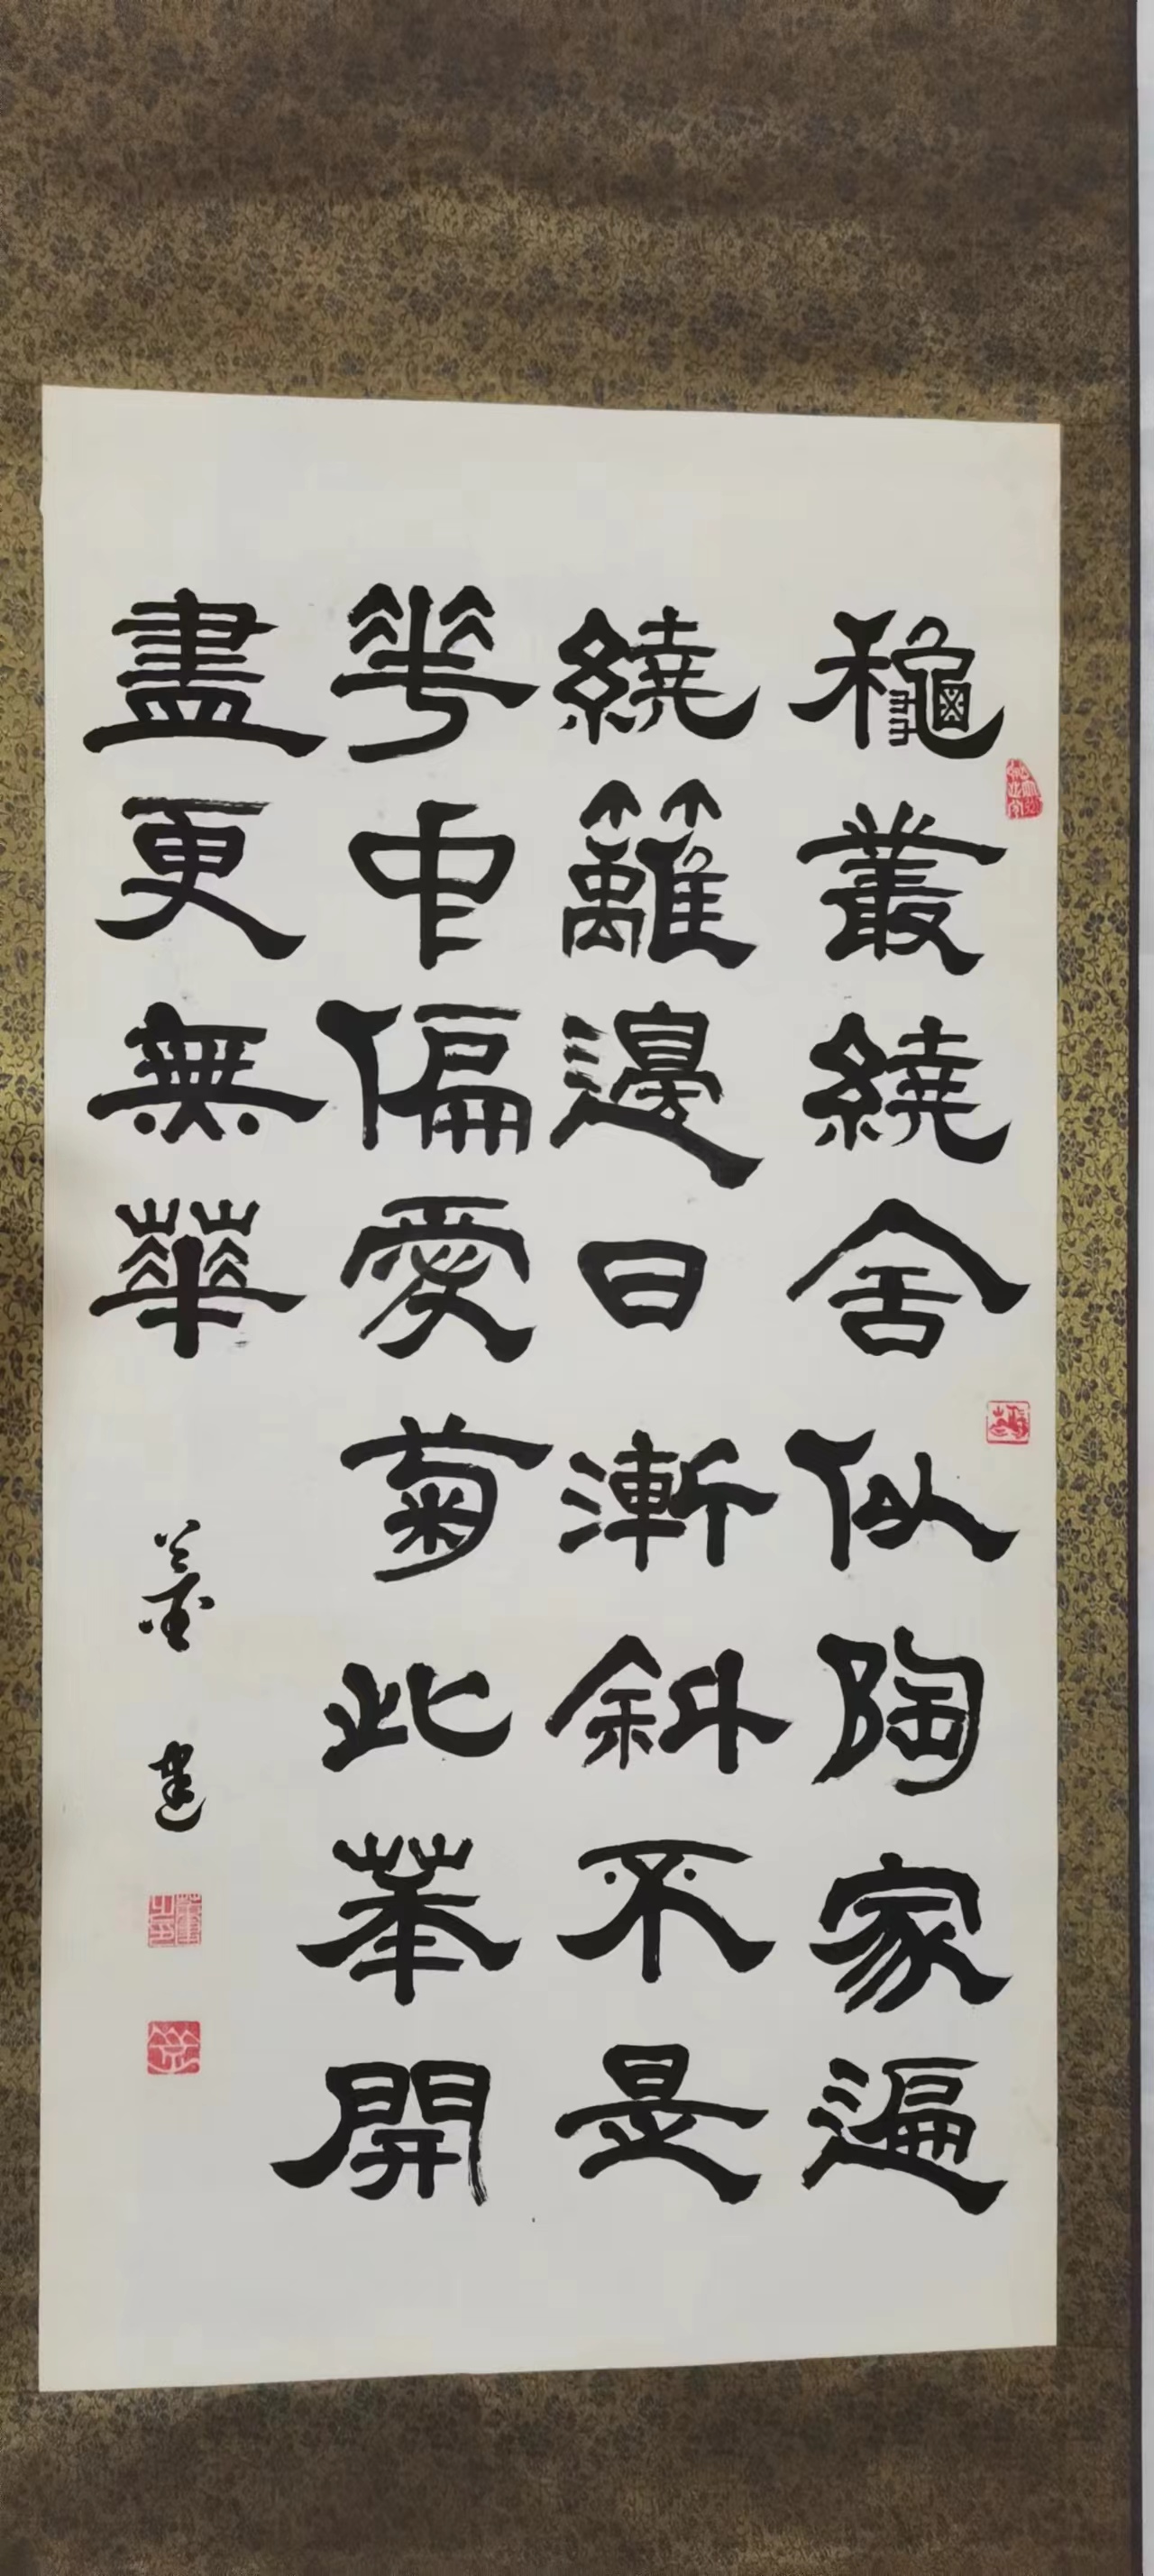 龝叢繞舍似陶家遍
繞籬邊日漸斜不是
花中偏愛菊此華開
盡更無華